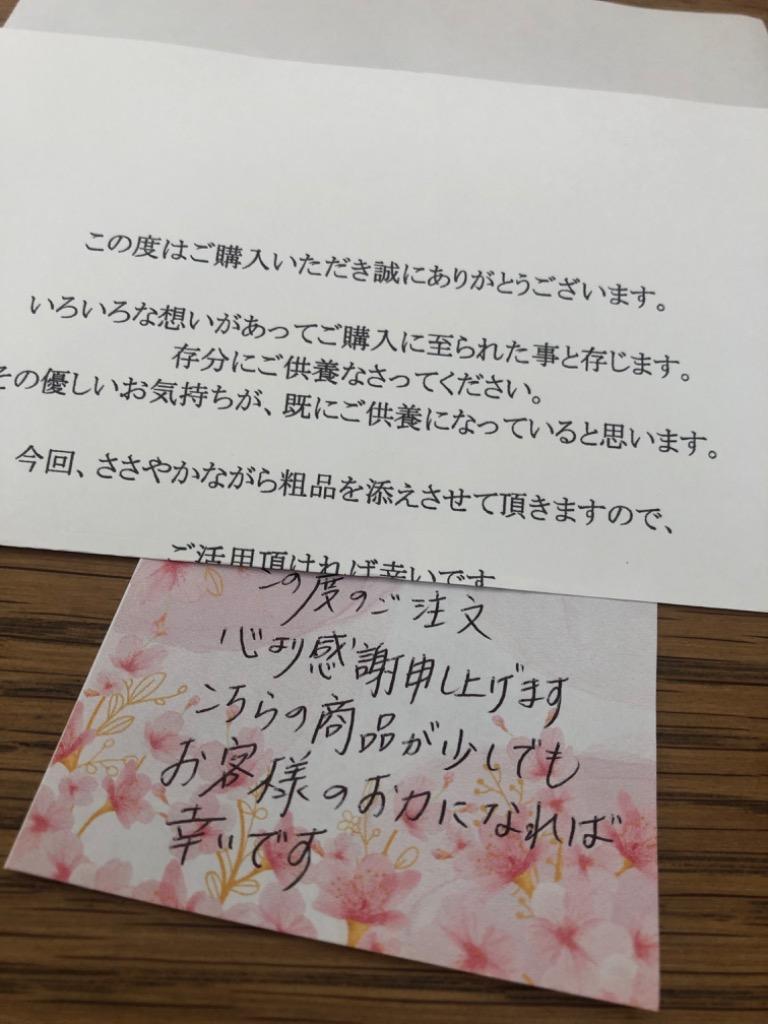 この度はご購入いただき誠にありがとうございます。
いろいろな想いがあってご購入に至られた事と存じます。
存分にご供養なさってください。
その優しいお気持ちが、既にご供養になっていると思います。
今回、ささやかながら粗品を添えさせて頂きますので、
ご活用頂ければ幸いです
この度のご注文
心より感謝申し上げます
こちらの商品が少しでも
お客様のお力になれば
幸いです